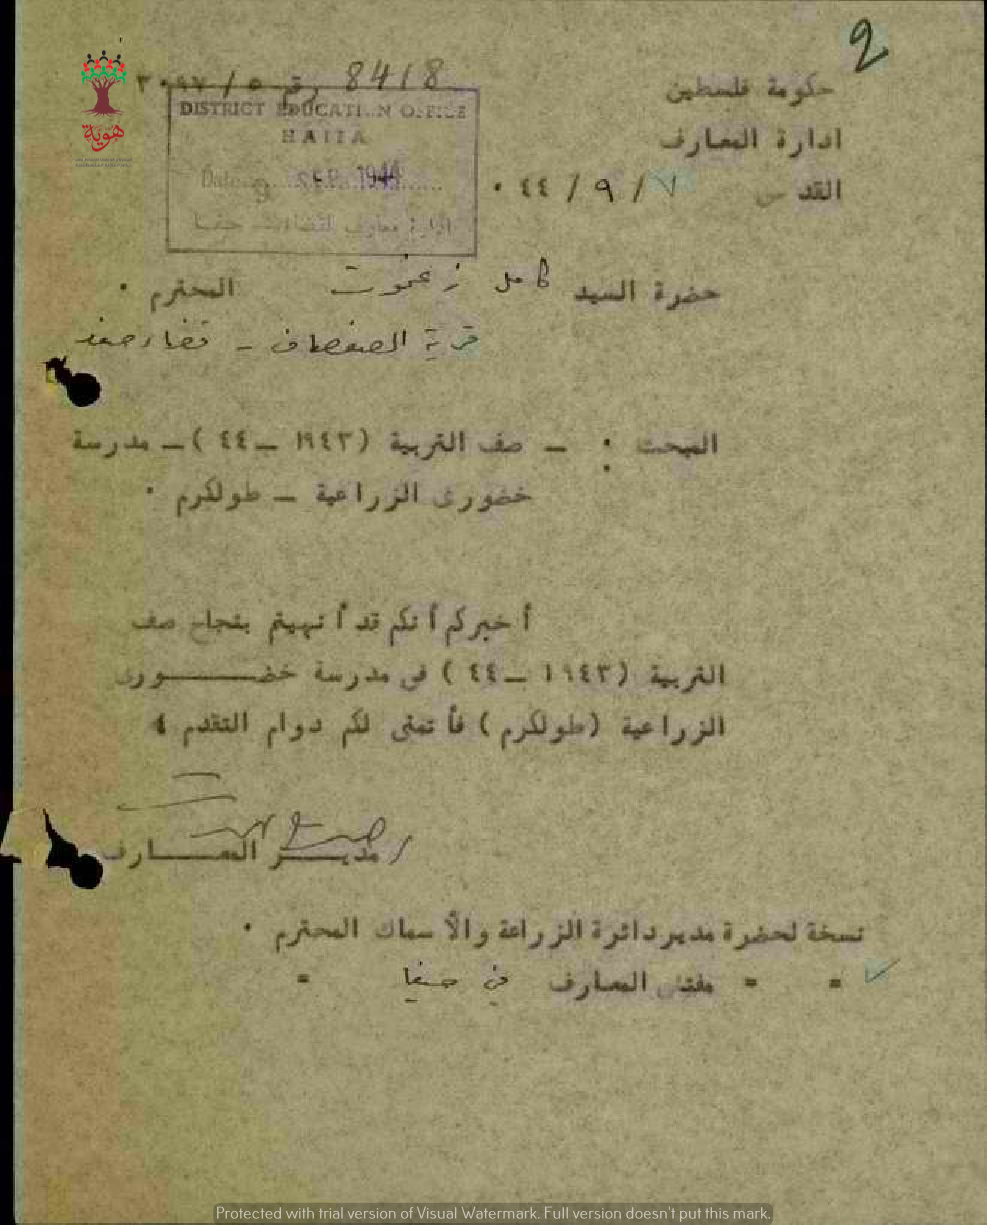 2
حكومة فلسطين
رقم 8418
ادارة المعارف
القدس ٧ / ٩ / ٤٤ ٠
DISTRICT EDUCATION OFFICE
HAIFA
Date 9 SEP 1944
هوية
حضرة السيد كامل زغموت المحترم ٠
قرية الصفصاف - قضاء صفد
المبحث : - صف التربية (١٩٤٣ - ٤٤) - مدرسة
خضورى الزراعية - طولكرم ٠
أخبركم أنكم قد أنهيتم بنجاح صف
التربية (١٩٤٣ - ٤٤) في مدرسة خضـــورى
الزراعية (طولكرم) فأتمنى لكم دوام التقدم ٤
مديــر المعــارف
نسخة لحضرة مدير دائرة الزراعة والأسماك المحترم ٠
= = مفتش المعارف في حيفا =
Protected with trial version of Visual Watermark. Full version doesn't put this mark.